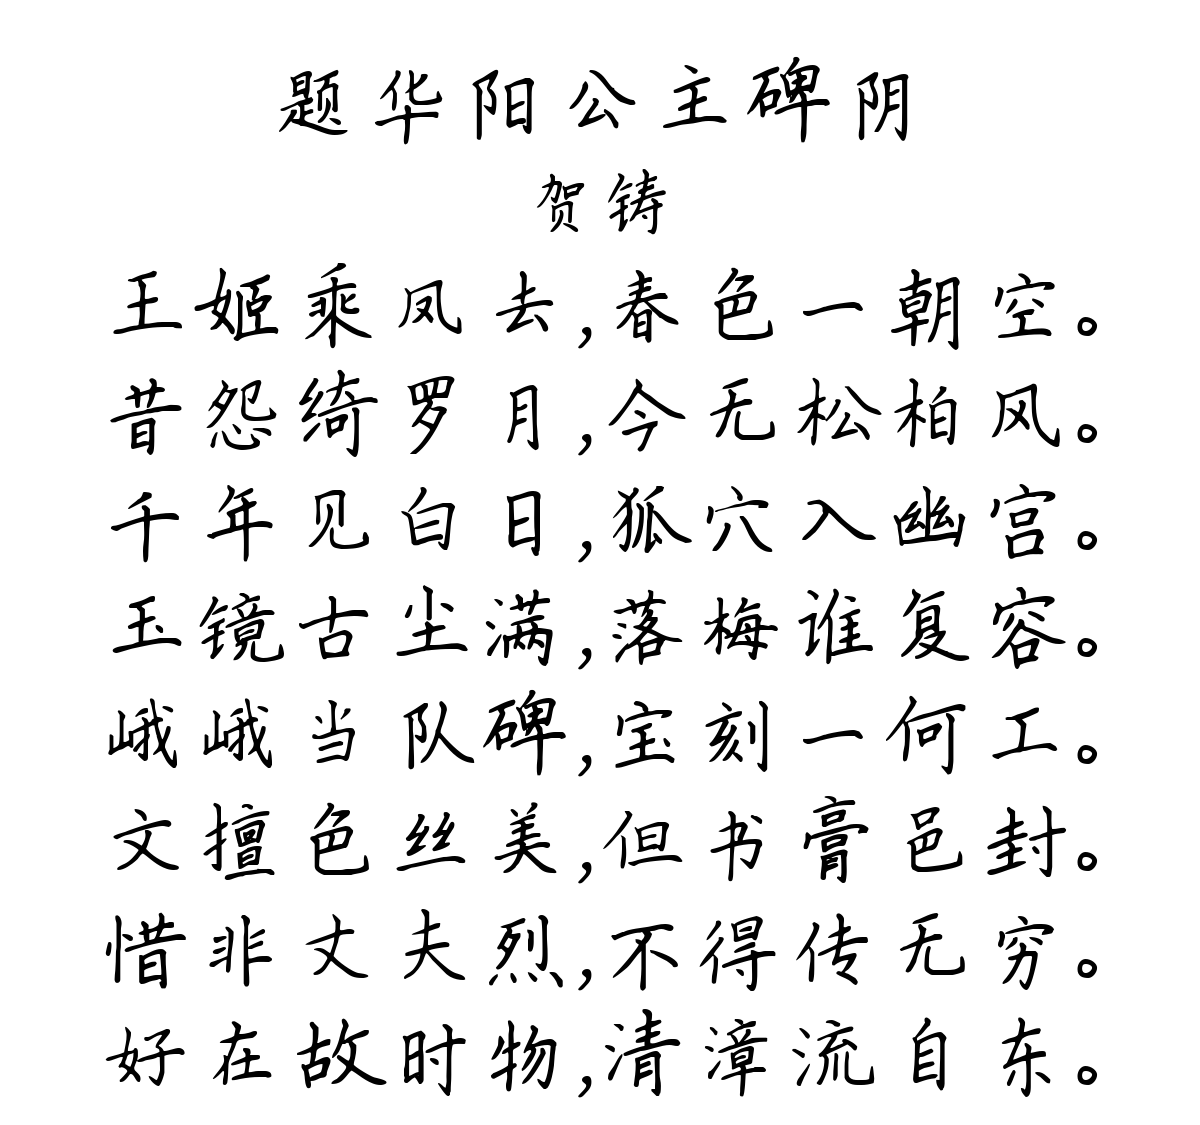 题华阳公主碑阴
贺铸
王姬乘凤去,春色一朝空。
昔怨绮罗月,今无松柏风。
千年见白日,狐穴入幽宫。
玉镜古尘满,落梅谁复容。
峨峨当队碑,宝刻一何工。
文擅色丝美,但书膏邑封。
惜非丈夫烈,不得传无穷。
好在故时物,清漳流自东。